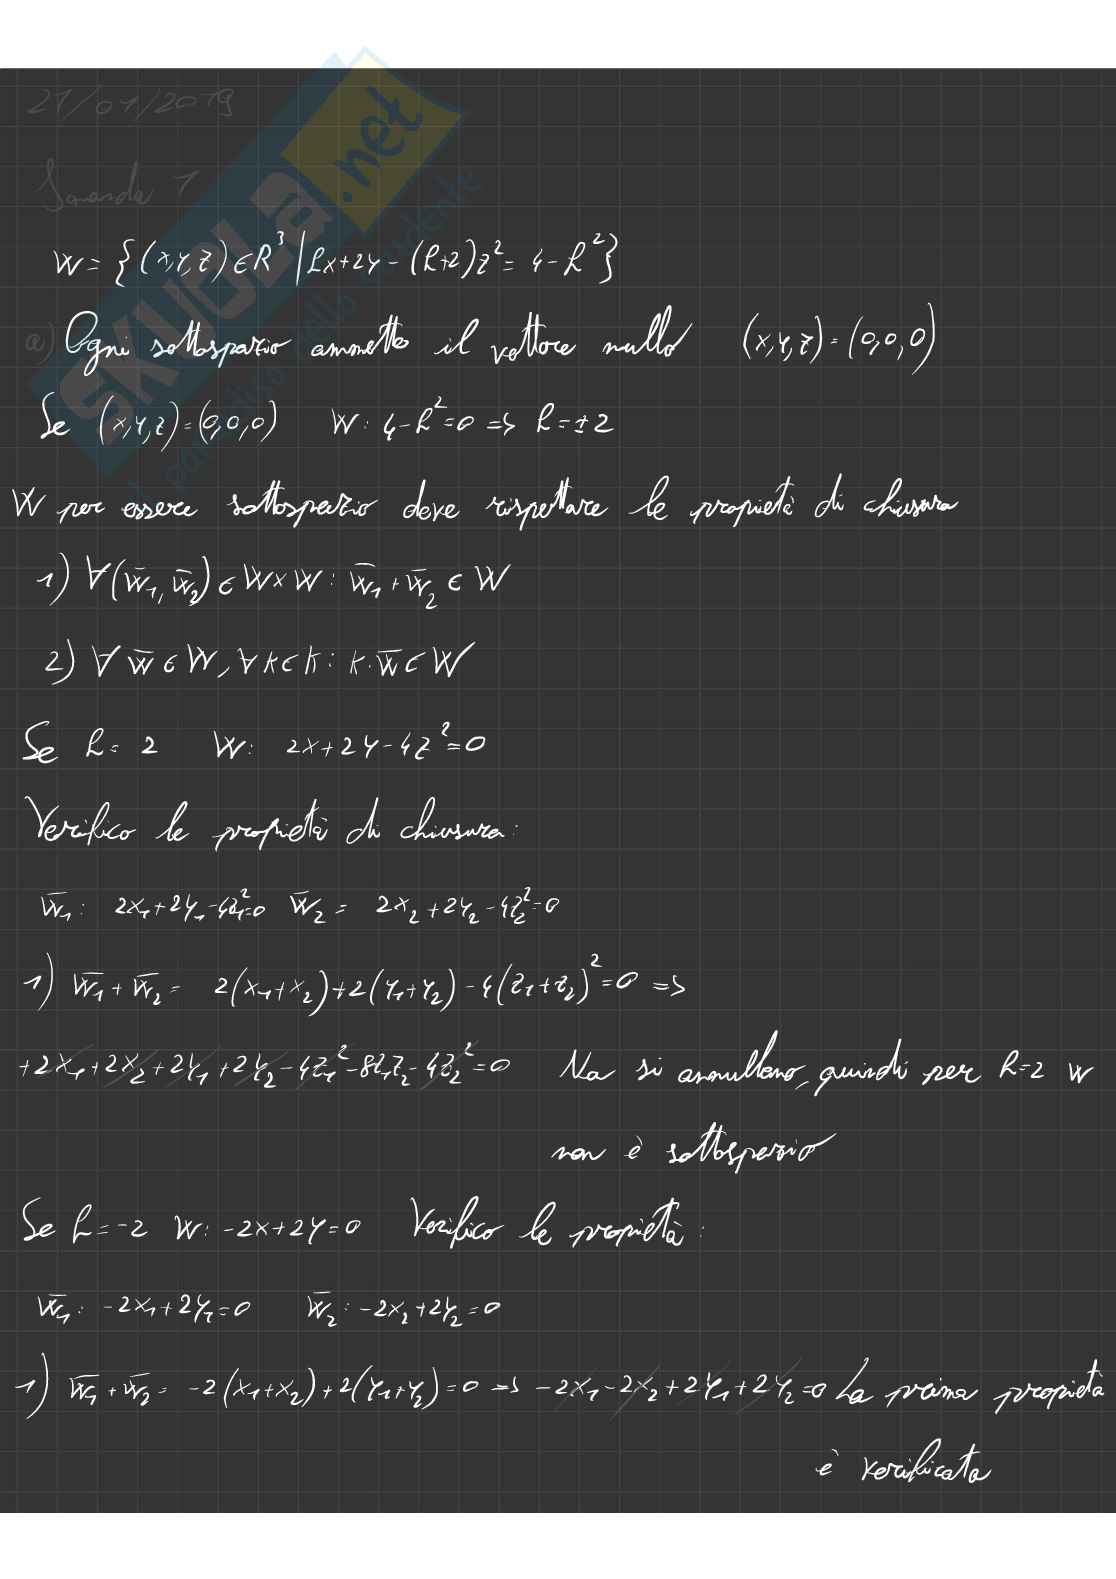 21/01/2019
Domanda 1
W = {(x,y,z) ∈ R³ | hx+2y-(h+2)z² = 4-h²}
a) Ogni sottospazio ammette il vettore nullo (x,y,z)=(0,0,0)
Se (x,y,z)=(0,0,0) W: 4-h²=0 => h=±2
W per essere sottospazio deve rispettare le propietà di chiusura
1) ∀(w̄₁, w̄₂) ∈ W×W : w̄₁+w̄₂ ∈ W
2) ∀ w̄ ∈ W, ∀ k ∈ K : k·w̄ ∈ W
Se h= 2 W: 2x+2y-4z²=0
Verifico le propietà di chiusura:
w̄₁: 2x₁+2y₁-4z₁²=0 w̄₂ = 2x₂+2y₂-4z₂²=0
1) w̄₁+w̄₂ = 2(x₁+x₂)+2(y₁+y₂)-4(z₁+z₂)²=0 =>
+2x₁+2x₂+2y₁+2y₂-4z₁²-8z₁z₂-4z₂²=0 Na si annullano, quindi per h=2 w
non è sottospazio
Se h=-2 W: -2x+2y=0 Verifico le propietà:
w̄₁: -2x₁+2y₁=0 w̄₂: -2x₂+2y₂=0
1) w̄₁+w̄₂ = -2(x₁+x₂)+2(y₁+y₂)=0 => -2x₁-2x₂+2y₁+2y₂=0 La prima propietà
è verificata
SKUOLA.net
il paradiso dello studente